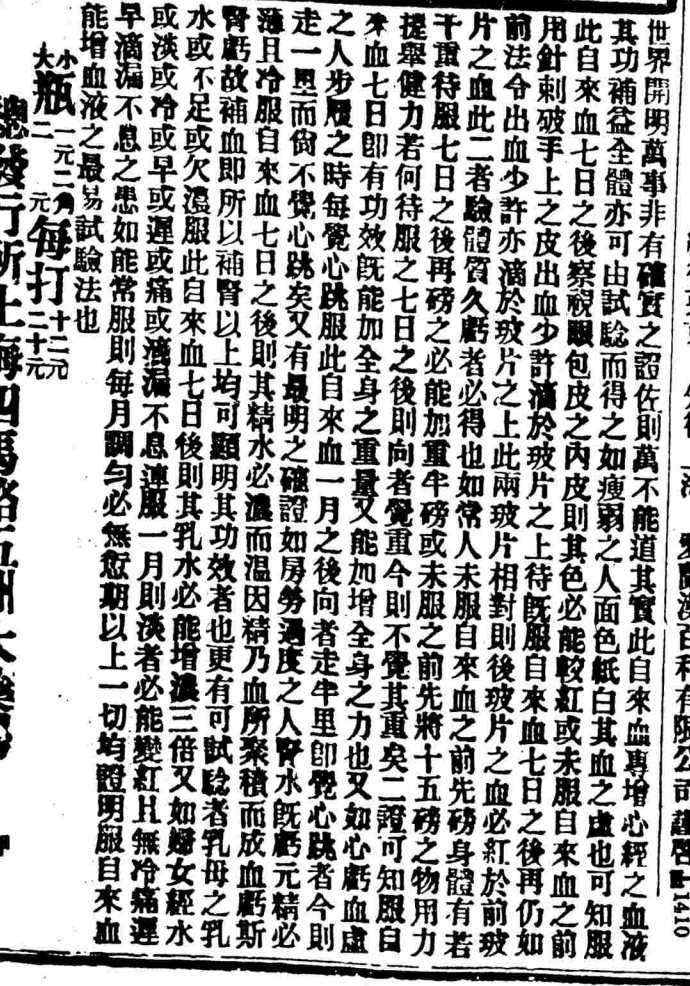 愛蘭漢百利有限公司謹啓 1410
世界開明萬事非有確實之證佐則萬不能道其實此自來血專增心經之血液
其功補益全體亦可由試驗而得之如瘦弱之人面色紙白其血之虛也可知服
此自來血七日之後察視眼包皮之內皮則其色必能較紅或未服自來血之前
用針刺破手上之皮出血少許滴於玻片之上待既服自來血七日之後再仍如
前法令出血少許亦滴於玻片之上此兩玻片相對則後玻片之血必紅於前玻
片之血此二者驗體質久虧者必得也如常人未服自來血之前先磅身體有若
干重待服七日之後再磅之必能加重半磅或未服之前先將十五磅之物用力
提舉健力若何待服之七日之後則向者覺重今則不覺其重矣二證可知服自
來血七日卽有功效旣能加全身之重量又能加增全身之力也又如心虧血虛
之人步履之時每覺心跳服此自來血一月之後向者走半里卽覺心跳者今則
走一里而尙不覺心跳矣又有最明之確證如房勞過度之人腎水旣虧元精必
薄且冷服自來血七日之後則其精水必濃而温因精乃血所聚積而成血虧斯
腎虧故補血卽所以補腎以上均可顯明其功效者也更有可試驗者乳母之乳
水或不足或欠濃服此自來血七日後則其乳水必能增濃三倍又如婦女經水
或淡或冷或早或遲或痛或滴漏不息連服一月則淡者必能變紅且無冷痛遲
早滴漏不息之患如能常服則每月調勻必無愆期以上一切均證明服自來血
能增血液之最易試驗法也
小瓶一元二角 每打十二元
大瓶二元 每打二十元
總發行所上海四馬路五洲大藥房